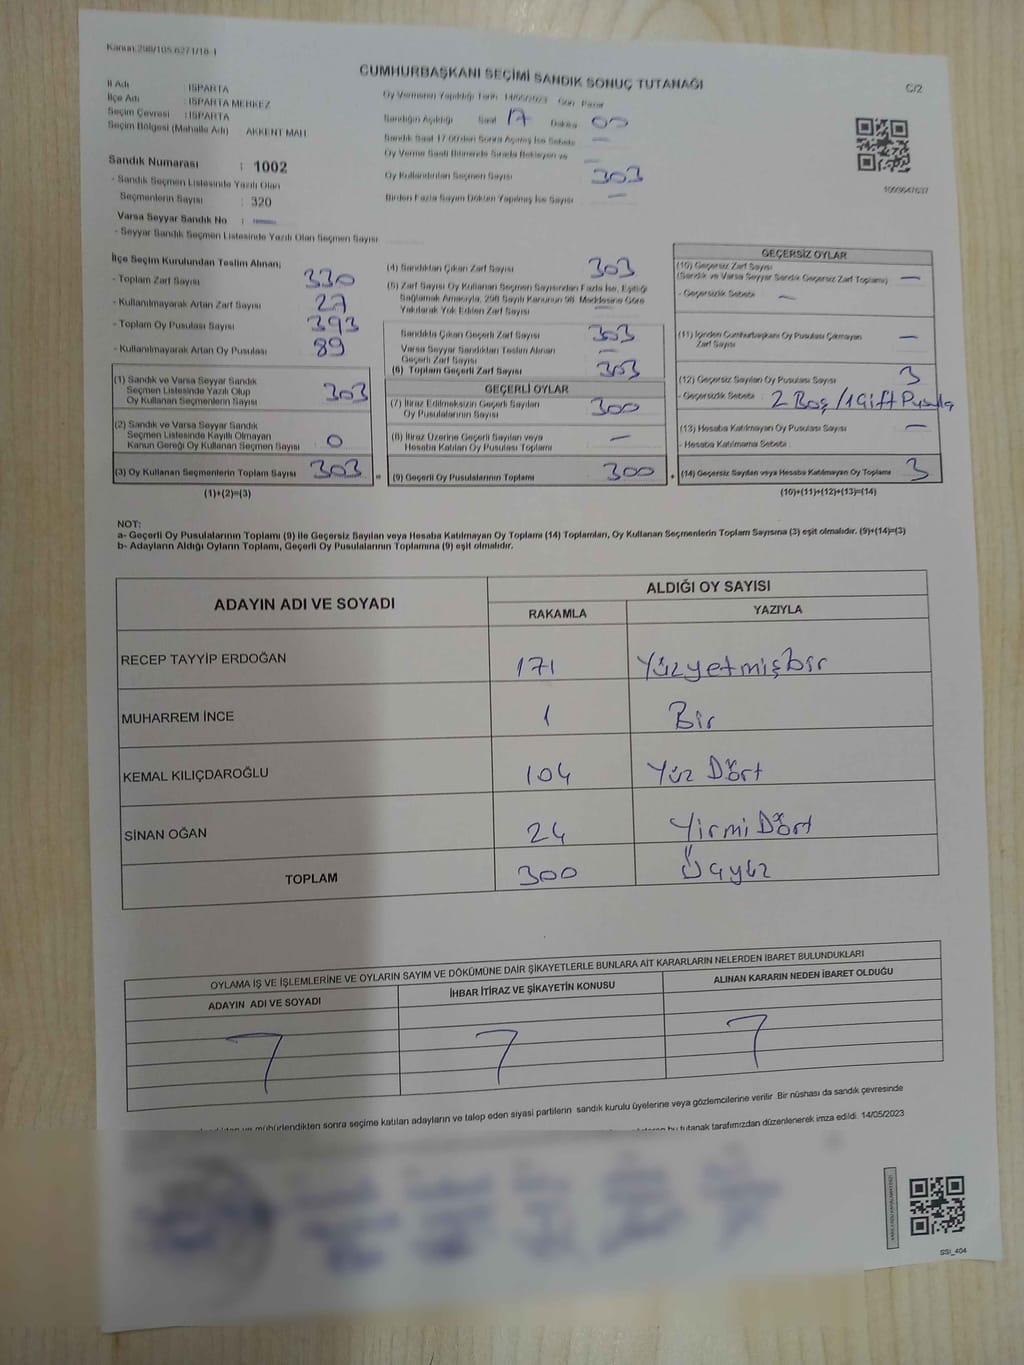 Kanun:298/105,6271/18-1
CUMHURBAŞKANI SEÇİMİ SANDIK SONUÇ TUTANAĞI
C/2
İl Adı : ISPARTA
İlçe Adı : ISPARTA MERKEZ
Seçim Çevresi : ISPARTA
Seçim Bölgesi (Mahalle Adı) AKKENT MAH.
Sandık Numarası : 1002
- Sandık Seçmen Listesinde Yazılı Olan
Seçmenlerin Sayısı : 320
Varsa Seyyar Sandık No : —
- Seyyar Sandık Seçmen Listesinde Yazılı Olan Seçmen Sayısı
Oy Vermenin Yapıldığı Tarih 14/05/2023 Gün Pazar
Sandığın Açıldığı Saat 17 Dakika 00
Sandık Saat 17.00'den Sonra Açılmış İse Sebebi —
Oy Verme Saati Bitiminde Sırada Bekleyen ve —
Oy Kullandırılan Seçmen Sayısı 303
Birden Fazla Sayım Döküm Yapılmış İse Sayısı —
1009647637
İlçe Seçim Kurulundan Teslim Alınan;
- Toplam Zarf Sayısı 330
- Kullanılmayarak Artan Zarf Sayısı 27
- Toplam Oy Pusulası Sayısı 393
- Kullanılmayarak Artan Oy Pusulası 89
(1) Sandık ve Varsa Seyyar Sandık
Seçmen Listesinde Yazılı Olup
Oy Kullanan Seçmenlerin Sayısı 303
(2) Sandık ve Varsa Seyyar Sandık
Seçmen Listesinde Kayıtlı Olmayan
Kanun Gereği Oy Kullanan Seçmen Sayısı 0
(3) Oy Kullanan Seçmenlerin Toplam Sayısı 303
(1)+(2)=(3)
(4) Sandıktan Çıkan Zarf Sayısı 303
(5) Zarf Sayısı Oy Kullanan Seçmen Sayısından Fazla İse, Eşitliği
Sağlamak Amacıyla, 298 Sayılı Kanunun 98. Maddesine Göre
Yakılarak Yok Edilen Zarf Sayısı —
Sandıkta Çıkan Geçerli Zarf Sayısı 303
Varsa Seyyar Sandıktan Teslim Alınan
Geçerli Zarf Sayısı —
(6) Toplam Geçerli Zarf Sayısı 303
GEÇERLİ OYLAR
(7) İtiraz Edilmeksizin Geçerli Sayılan
Oy Pusulalarının Sayısı 300
(8) İtiraz Üzerine Geçerli Sayılan veya
Hesaba Katılan Oy Pusulası Toplamı —
= (9) Geçerli Oy Pusulalarının Toplamı 300
GEÇERSİZ OYLAR
(10) Geçersiz Zarf Sayısı
(Sandık ve Varsa Seyyar Sandık Geçersiz Zarf Toplamı) —
- Geçersizlik Sebebi : —
(11) İçinden Cumhurbaşkanı Oy Pusulası Çıkmayan
Zarf Sayısı —
(12) Geçersiz Sayılan Oy Pusulası Sayısı 3
- Geçersizlik Sebebi : 2 Boş / 1 Çift Pusula
(13) Hesaba Katılmayan Oy Pusulası Sayısı —
- Hesaba Katılmama Sebebi :
+ (14) Geçersiz Sayılan veya Hesaba Katılmayan Oy Toplamı 3
(10)+(11)+(12)+(13)=(14)
NOT:
a- Geçerli Oy Pusulalarının Toplamı (9) ile Geçersiz Sayılan veya Hesaba Katılmayan Oy Toplamı (14) Toplamları, Oy Kullanan Seçmenlerin Toplam Sayısına (3) eşit olmalıdır. (9)+(14)=(3)
b- Adayların Aldığı Oyların Toplamı, Geçerli Oy Pusulalarının Toplamına (9) eşit olmalıdır.
ADAYIN ADI VE SOYADI ALDIĞI OY SAYISI
RAKAMLA YAZIYLA
RECEP TAYYİP ERDOĞAN 171 Yüzyetmişbir
MUHARREM İNCE 1 Bir
KEMAL KILIÇDAROĞLU 104 Yüz Dört
SİNAN OĞAN 24 Yirmi Dört
TOPLAM 300 Üçyüz
OYLAMA İŞ VE İŞLEMLERİNE VE OYLARIN SAYIM VE DÖKÜMÜNE DAİR ŞİKAYETLERLE BUNLARA AİT KARARLARIN NELERDEN İBARET BULUNDUKLARI
ADAYIN ADI VE SOYADI İHBAR İTİRAZ VE ŞİKAYETİN KONUSU ALINAN KARARIN NEDEN İBARET OLDUĞU
ve mühürlendikten sonra seçime katılan adayların ve talep eden siyasi partilerin sandık kurulu üyelerine veya gözlemcilerine verilir. Bir nüshası da sandık çevresinde
bu tutanak tarafımızdan düzenlenerek imza edildi. 14/05/2023
SSI_404